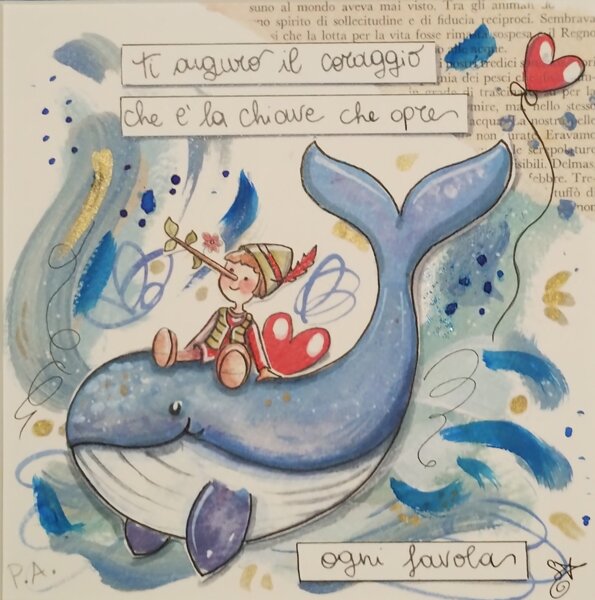 suno al mondo aveva mai visto. Tra gli animali
no spirito di sollecitudine e di fiducia reciproci. Sembrava
si che la lotta per la vita fosse rimasta sospesa, il Regno
alle acque.
tredici
mia dei pesci
in grado di
mire, ma nello stesso
acqua. La nostra
non urate Eravamo
le screpolature
sibili. Delmas
febbre. Tre
tuffò di
non
ti auguro il coraggio
che è la chiave che apre
ogni favola
P.A.